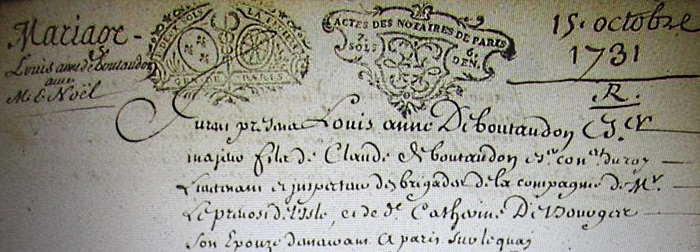 Mariage
Louis anne de boutaudon
avec
Mle Noël
GEN DE PARIS
ACTES DES NOTAIRES DE PARIS
2. SOLS 6. DEN.
15. octobre
1731
R.
Furent présens Louis anne Deboutaudon Er
majeur fils de Claude deboutaudon er conr du roy
Lieutenant et inspecteur des brigades de la compagnie de Mr
Le prevost de l'isle, et de de Catherine
son Epouze demeurant a paris sur le quay